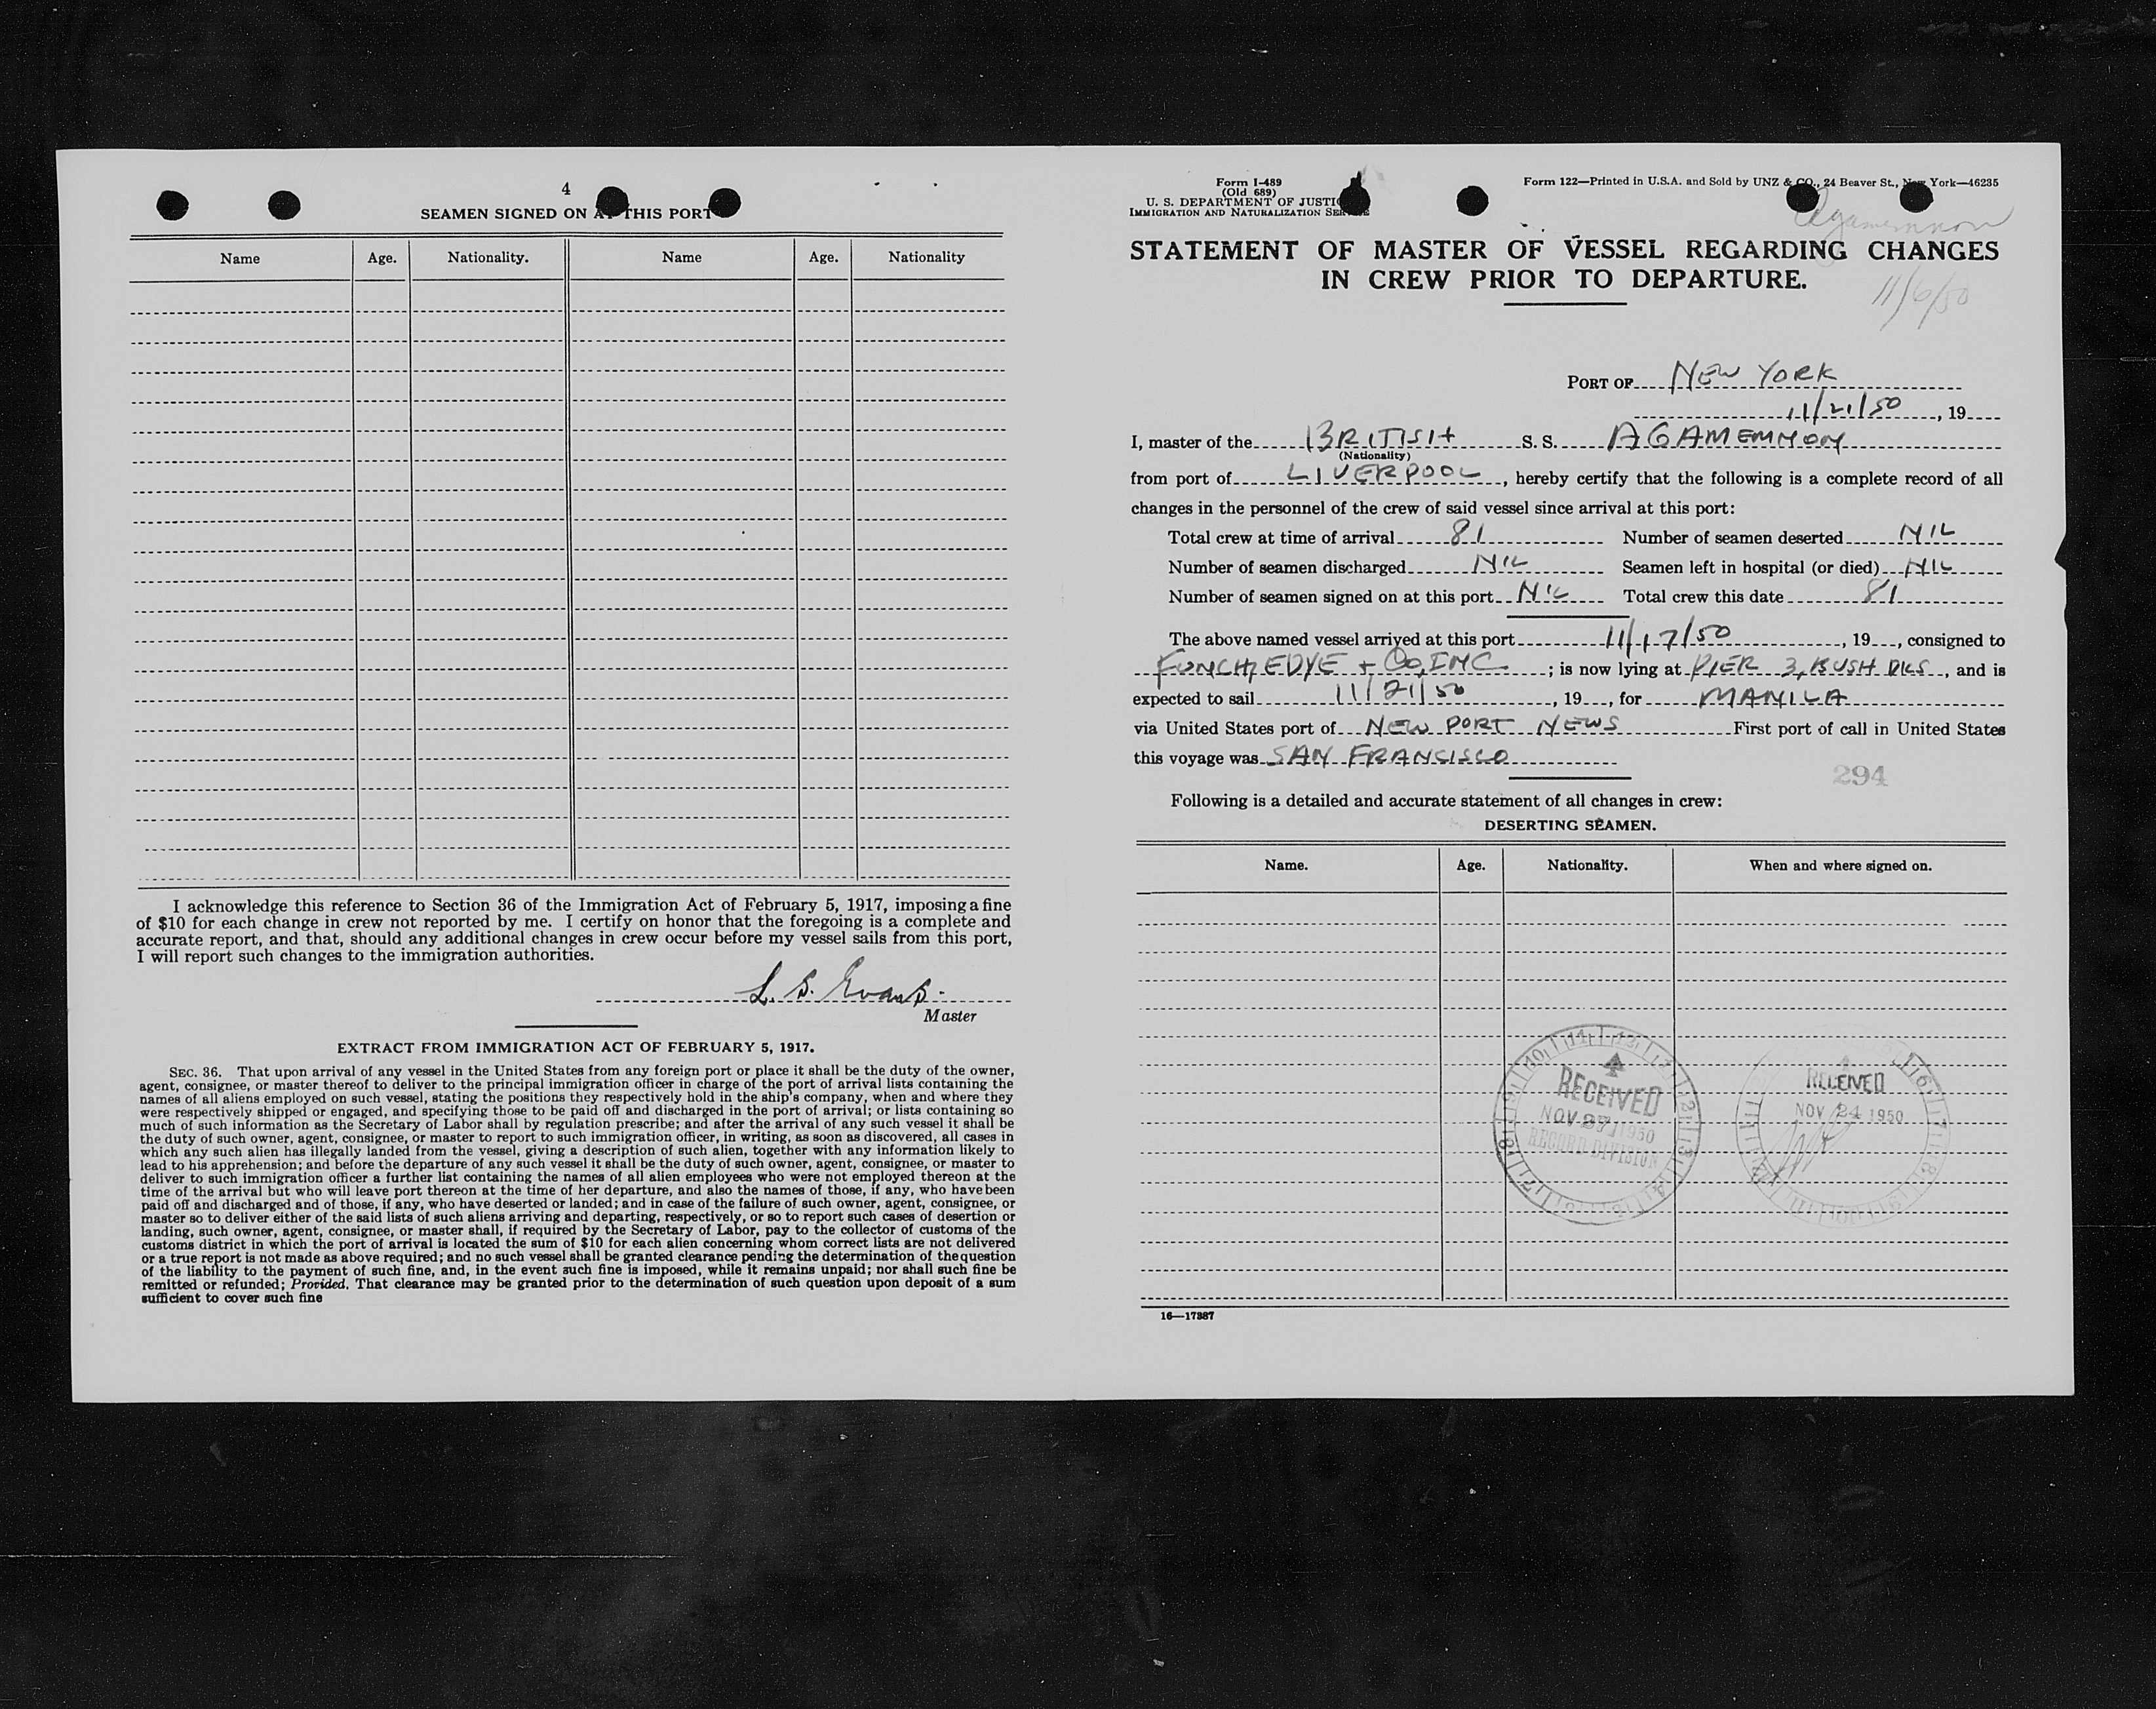 4
SEAMEN SIGNED ON AT THIS PORT
Name Age. Nationality. Name Age. Nationality
I acknowledge this reference to Section 36 of the Immigration Act of February 5, 1917, imposing a fine
of $10 for each change in crew not reported by me. I certify on honor that the foregoing is a complete and
accurate report, and that, should any additional changes in crew occur before my vessel sails from this port,
I will report such changes to the immigration authorities.
L. S. Evans.
Master
EXTRACT FROM IMMIGRATION ACT OF FEBRUARY 5, 1917.
SEC. 36. That upon arrival of any vessel in the United States from any foreign port or place it shall be the duty of the owner,
agent, consignee, or master thereof to deliver to the principal immigration officer in charge of the port of arrival lists containing the
names of all aliens employed on such vessel, stating the positions they respectively hold in the ship's company, when and where they
were respectively shipped or engaged, and specifying those to be paid off and discharged in the port of arrival; or lists containing so
much of such information as the Secretary of Labor shall by regulation prescribe; and after the arrival of any such vessel it shall be
the duty of such owner, agent, consignee, or master to report to such immigration officer, in writing, as soon as discovered, all cases in
which any such alien has illegally landed from the vessel, giving a description of such alien, together with any information likely to
lead to his apprehension; and before the departure of any such vessel it shall be the duty of such owner, agent, consignee, or master to
deliver to such immigration officer a further list containing the names of all alien employees who were not employed thereon at the
time of the arrival but who will leave port thereon at the time of her departure, and also the names of those, if any, who have been
paid off and discharged and of those, if any, who have deserted or landed; and in case of the failure of such owner, agent, consignee, or
master so to deliver either of the said lists of such aliens arriving and departing, respectively, or so to report such cases of desertion or
landing, such owner, agent, consignee, or master shall, if required by the Secretary of Labor, pay to the collector of customs of the
customs district in which the port of arrival is located the sum of $10 for each alien concerning whom correct lists are not delivered
or a true report is not made as above required; and no such vessel shall be granted clearance pending the determination of the question
of the liability to the payment of such fine, and, in the event such fine is imposed, while it remains unpaid; nor shall such fine be
remitted or refunded; Provided, That clearance may be granted prior to the determination of such question upon deposit of a sum
sufficient to cover such fine
Form I-489
(Old 689)
U. S. DEPARTMENT OF JUSTICE
IMMIGRATION AND NATURALIZATION SERVICE
Form 122—Printed in U.S.A. and Sold by UNZ & CO., 24 Beaver St., New York—46235
Agamemnon
STATEMENT OF MASTER OF VESSEL REGARDING CHANGES
IN CREW PRIOR TO DEPARTURE.
11/6/50
PORT OF NEW YORK
11/21/50, 19
I, master of the BRITISH S. S. AGAMEMNON
(Nationality)
from port of LIVERPOOL, hereby certify that the following is a complete record of all
changes in the personnel of the crew of said vessel since arrival at this port:
Total crew at time of arrival 81 Number of seamen deserted NIL
Number of seamen discharged NIL Seamen left in hospital (or died) NIL
Number of seamen signed on at this port NIL Total crew this date 81
The above named vessel arrived at this port 11/17/50, 19, consigned to
FUNCH, EDYE + CO, INC; is now lying at PIER 3, BUSH DKS, and is
expected to sail 11/21/50, 19, for MANILA
via United States port of NEW PORT NEWS First port of call in United States
this voyage was SAN FRANCISCO
294
Following is a detailed and accurate statement of all changes in crew:
DESERTING SEAMEN.
Name. Age. Nationality. When and where signed on.
RECEIVED
NOV 27 1950
RECORD DIVISION
RECEIVED
NOV 24 1950
16—17387